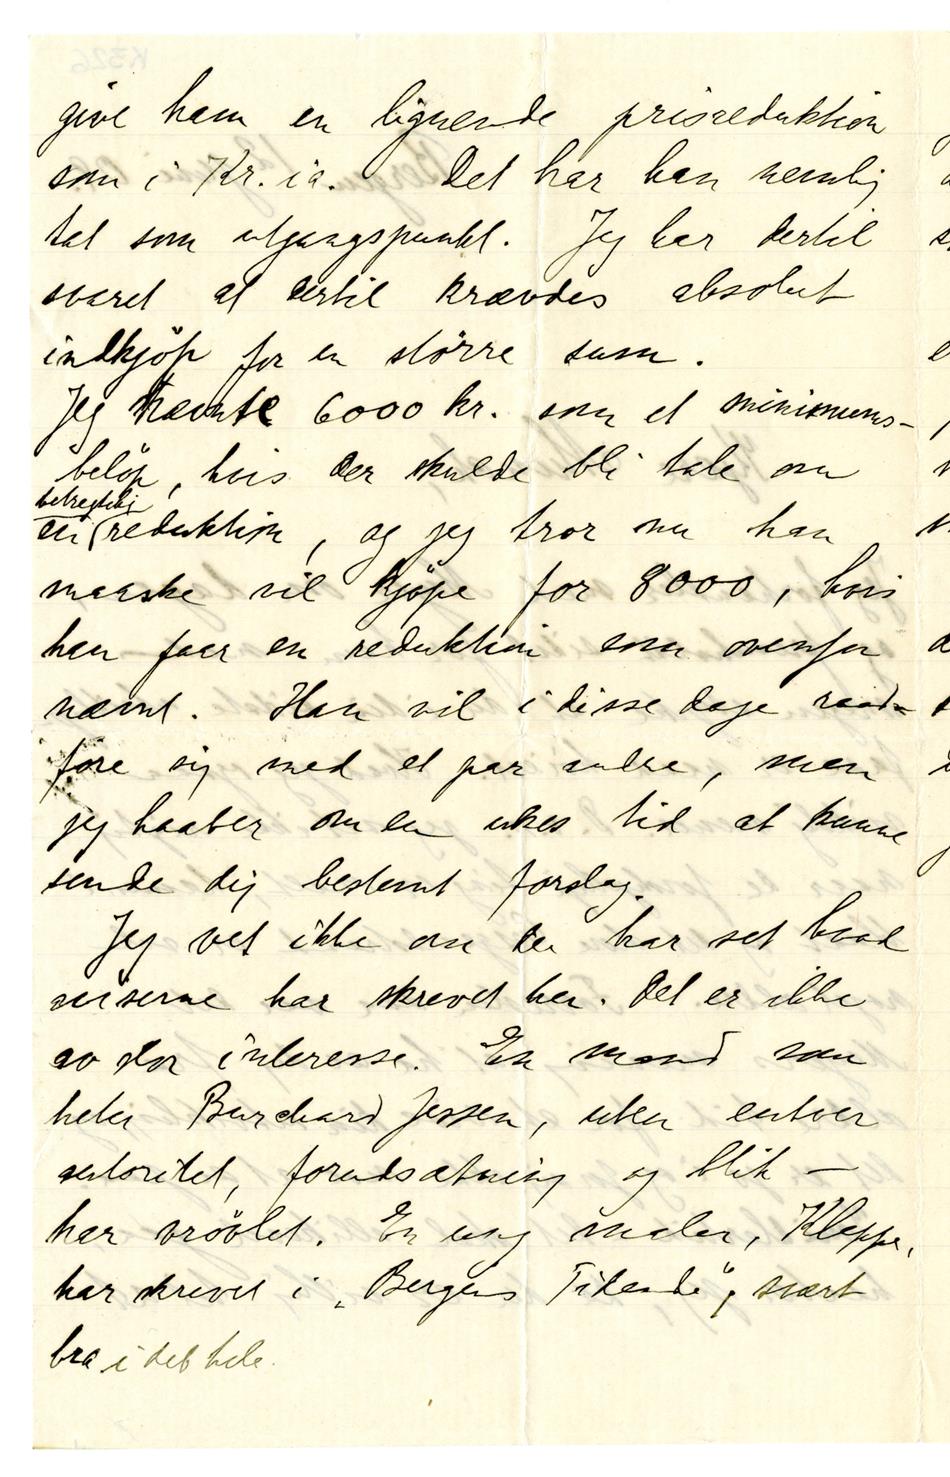 give ham en lignende prisreduktion
som i Kr.ia. Det har han nemlig
tat som utgangspunkt. Jeg har dertil
svaret at dertil krævdes absolut
indkjöp for en större sum.
Jeg nævnte 6000 kr. som et minimums-
belöp, hvis der skulde bli tale om
betregtelig
en reduktion, og jeg tror nu han
maaske vil kjöpe for 8000, hvis
han faar en reduktion som ovenfor
nævnt. Han vil i disse dage raad-
före sig med et par andre, men
jeg haaber om en ukes tid at kunne
sende dig bestemt forslag.
Jeg vet ikke om du har set hvad
aviserne har skrevet her. Det er ikke
av stor interesse. En mand som
heter Burchard Jessen, uten enhver
autoritet, forudsætning og blik —
har vrövlet. En ung maler, Kleppe,
har skrevet i „Bergens Tidende", svært
bra i det hele.